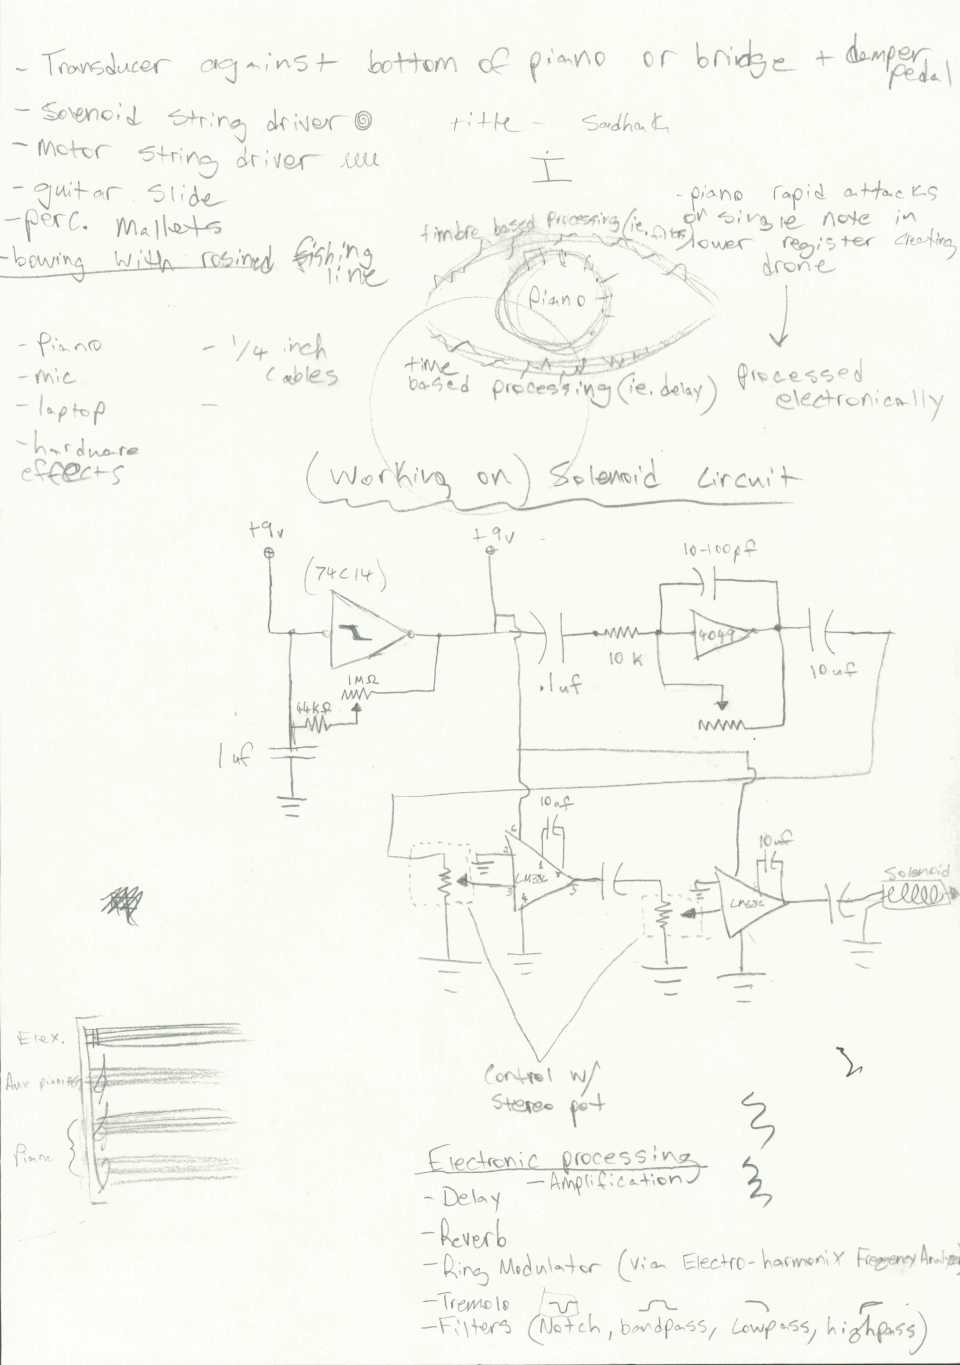 - Transducer against bottom of piano or bridge + damper
pedal
- Solenoid string driver
title -
- Motor string driver
- guitar slide
- perc. mallets
- bowing with rosined fishing
line
- piano rapid attacks
on single note in
lower register creating
drone
timbre based processing (ie. filter)
Piano
time
based processing (ie. delay)
processed
electronically
- Piano
- mic
- laptop
- hardware
effects
- 1/4 inch
cables
-
(Working on) Solenoid Circuit
+9v
+9v
(74C14)
10-100pf
4049
1MΩ
44KΩ
.1uf
10K
10uf
1uf
10uf
10uf
6
2
3
1
4
5
Solenoid
Control w/
Stereo pot
Elex.
Piano
Electronic processing
- Amplification
- Delay
- Reverb
- Ring Modulator (via Electro-harmonix Frequency Analyzer
- Tremolo
- Filters (Notch, bandpass, Lowpass, highpass)